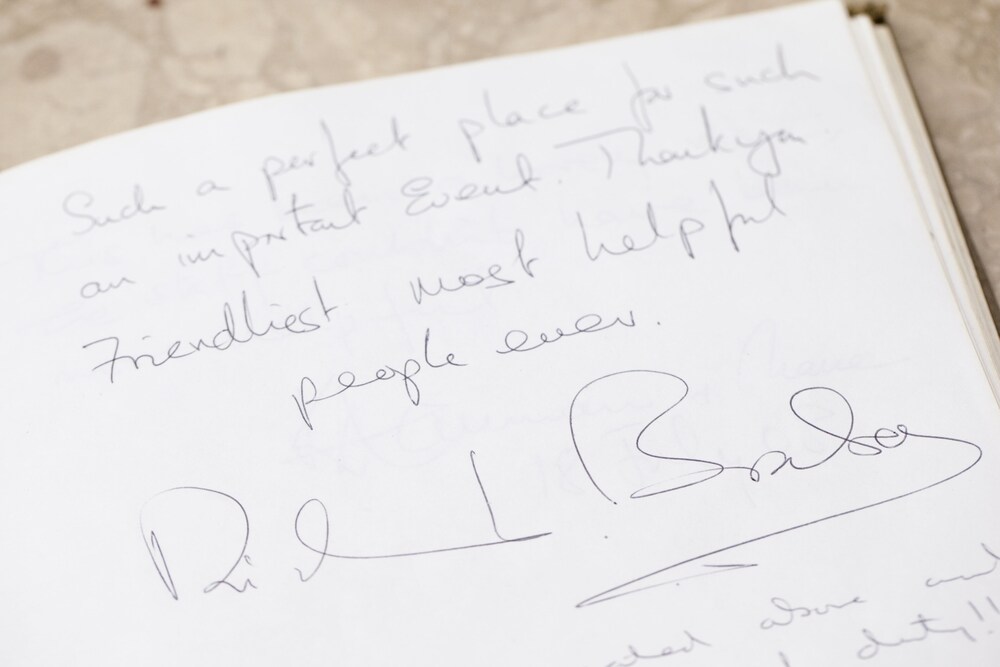 Such a perfect place for such
an important Event. Thankyou
Friendliest most helpful
people ever.
above and
duty!!